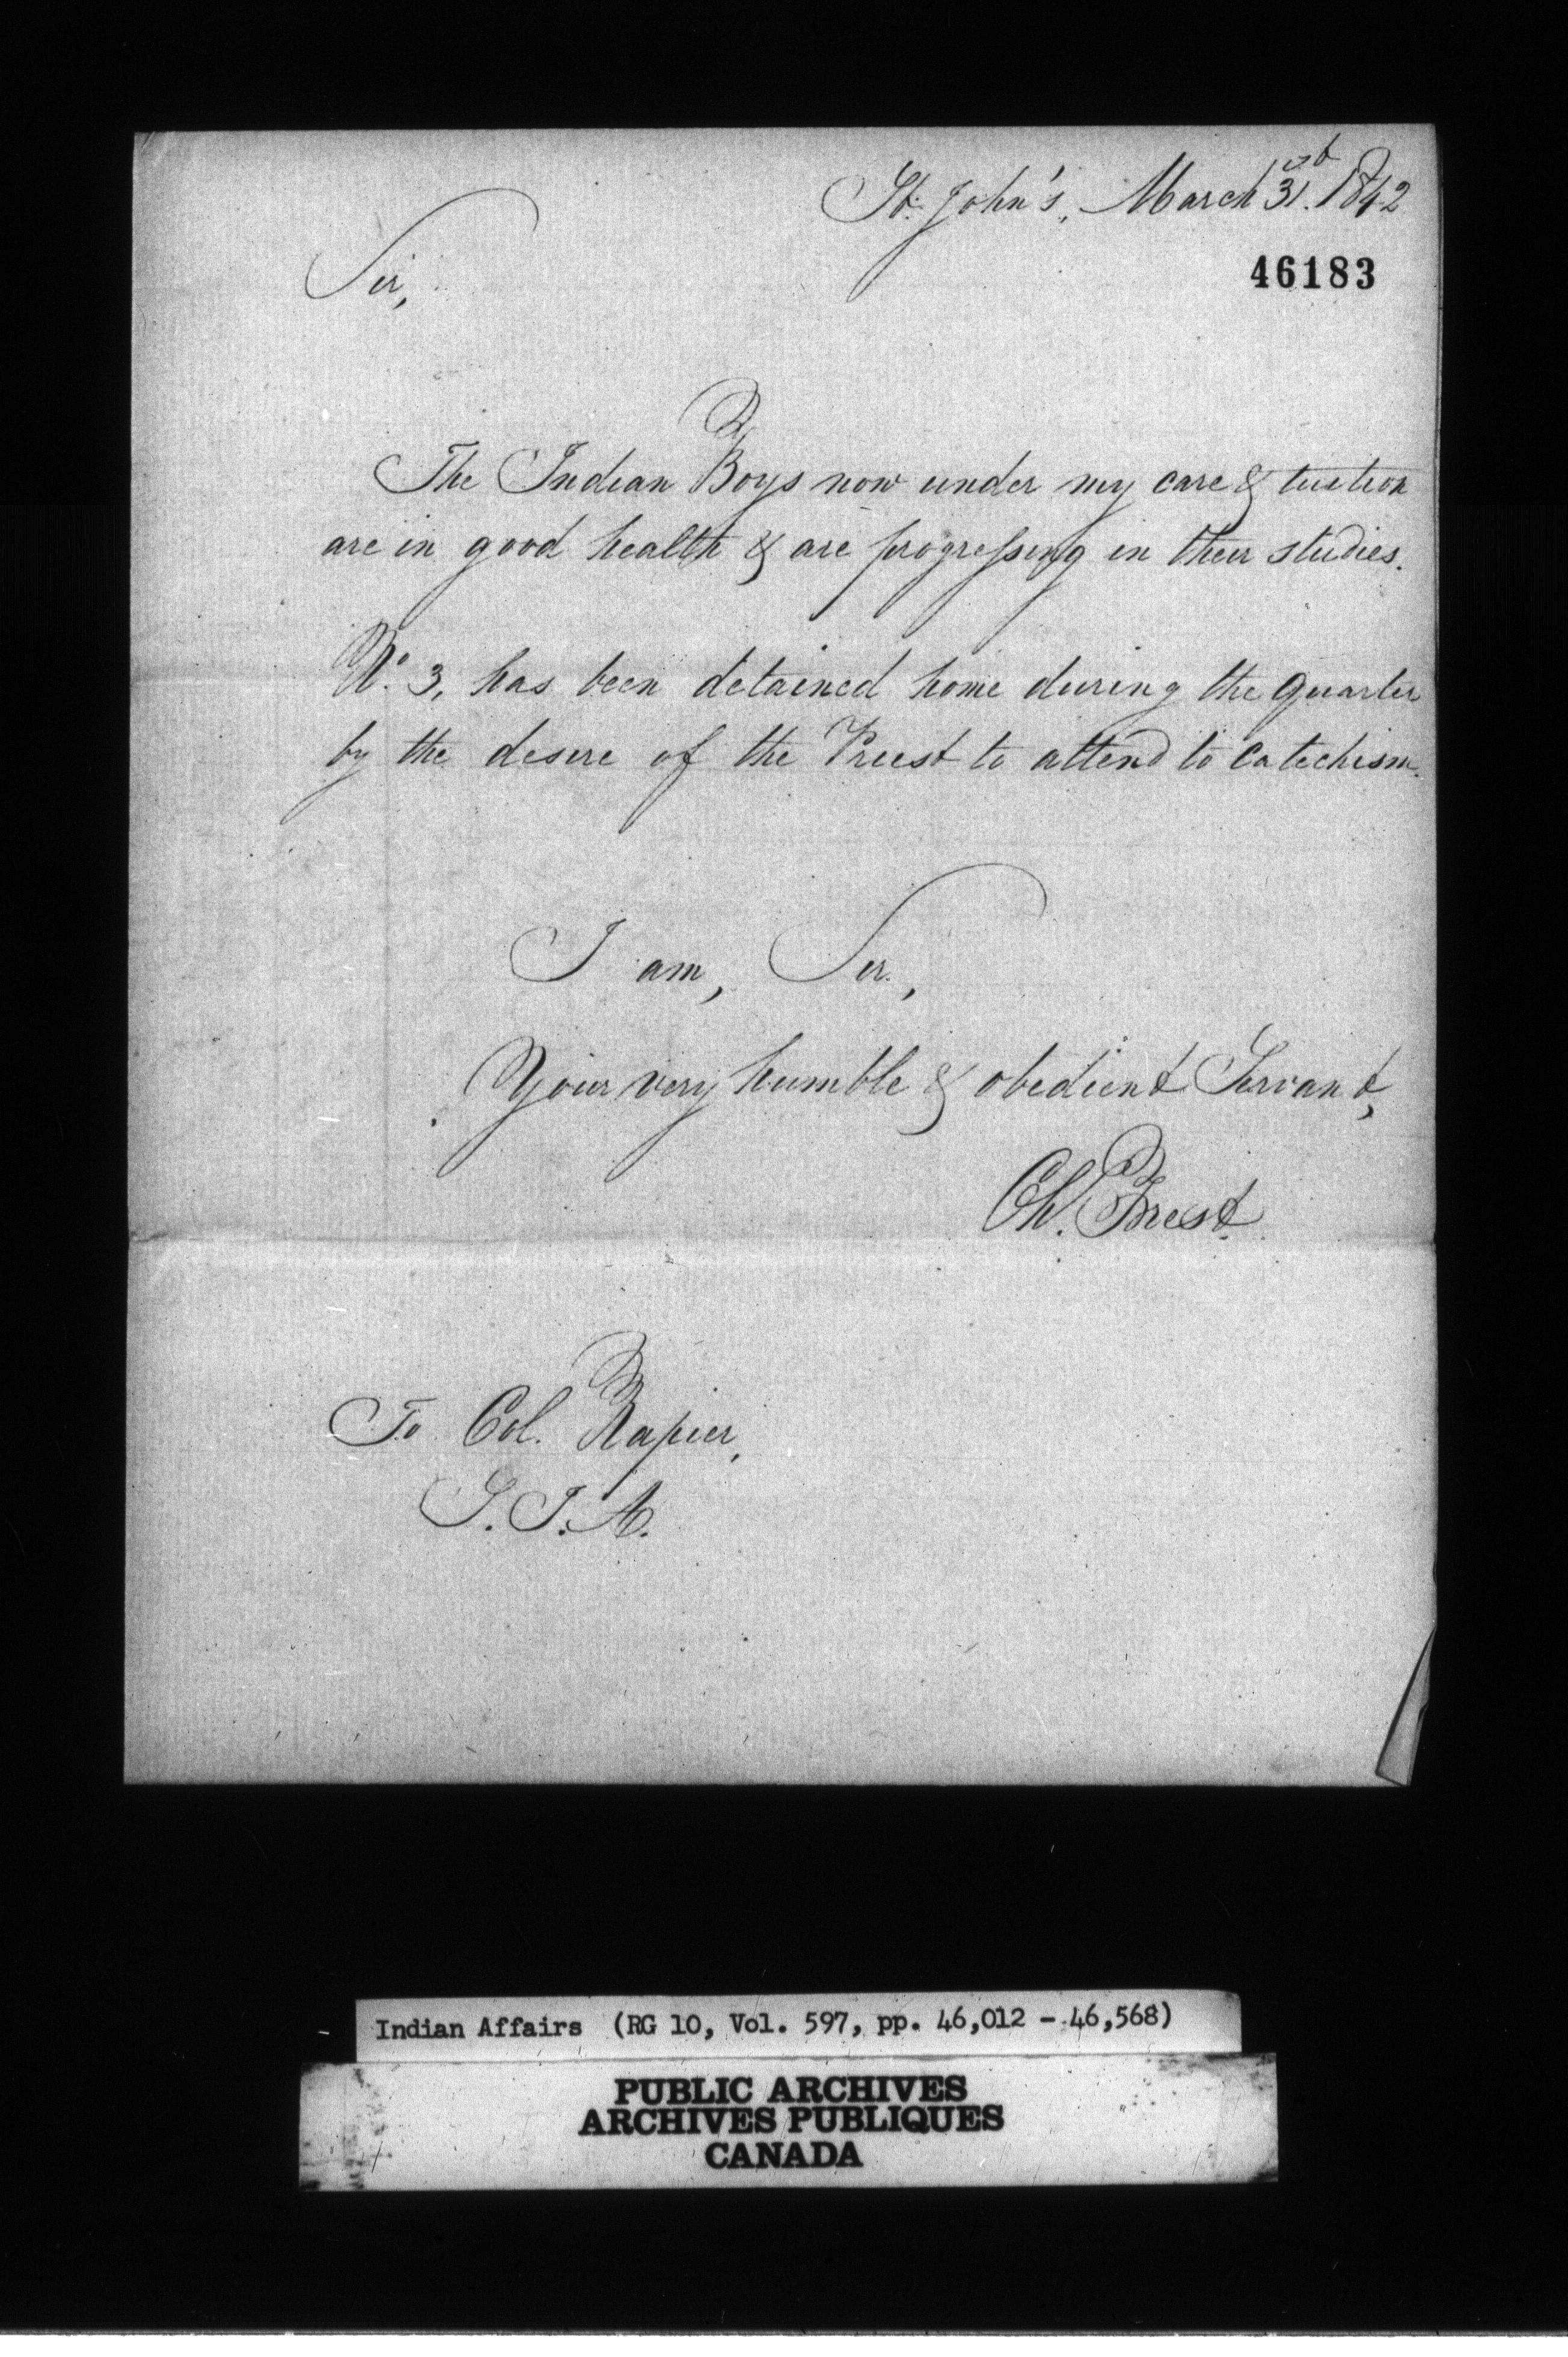 St. John's, March 31st. 1842
46183
Sir,
The Indian Boys now under my care & tuition
are in good health & are progressing in their studies.
No. 3, has been detained home during the quarter
by the desire of the Priest to attend to Catechism.
I am, Sir,
Your very humble & obedient Servant,
Ch. Forest.
To Col. Napier,
S.I.A.
Indian Affairs (RG 10, Vol. 597, pp. 46,012 - 46,568)
PUBLIC ARCHIVES
ARCHIVES PUBLIQUES
CANADA